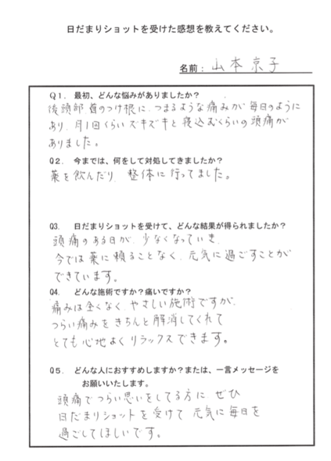 日だまりショットを受けた感想を教えてください。
名前: 山本京子
Q1. 最初、どんな悩みがありましたか?
後頭部首のつけ根に、つまるような痛みが毎日のように
あり、月1回くらいズキズキと寝込むくらいの頭痛が
ありました。
Q2. 今までは、何をして対処してきましたか?
薬を飲んだり 整体に行ってました。
Q3. 日だまりショットを受けて、どんな結果が得られましたか?
頭痛のある日が 少なくなっていき、
今では薬に頼ることなく、元気に過ごすことが
できています。
Q4. どんな施術ですか?痛いですか?
痛みは全くなく やさしい施術ですが、
つらい痛みをきちんと解消してくれて
とても心地よくリラックスできます。
Q5. どんな人におすすめしますか?または、一言メッセージを
お願いいたします。
頭痛でつらい思いをしてる方に ぜひ
日だまりショットを受けて 元気に毎日を
過ごしてほしいです。